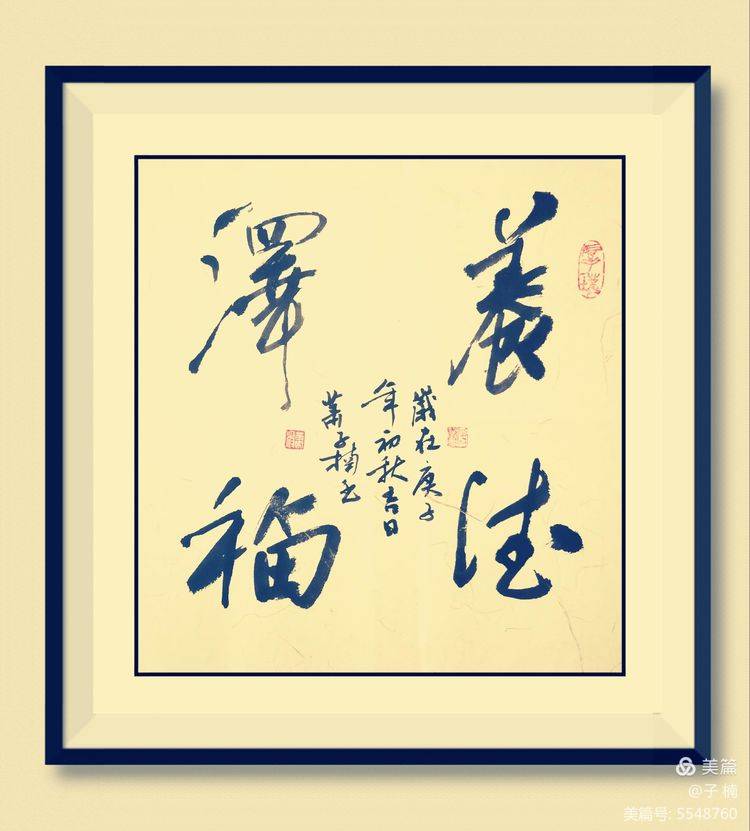 養德
澤福
歲在庚子
年初秋吉日
萧子楠书
美篇
@子 楠
美篇号: 5548760